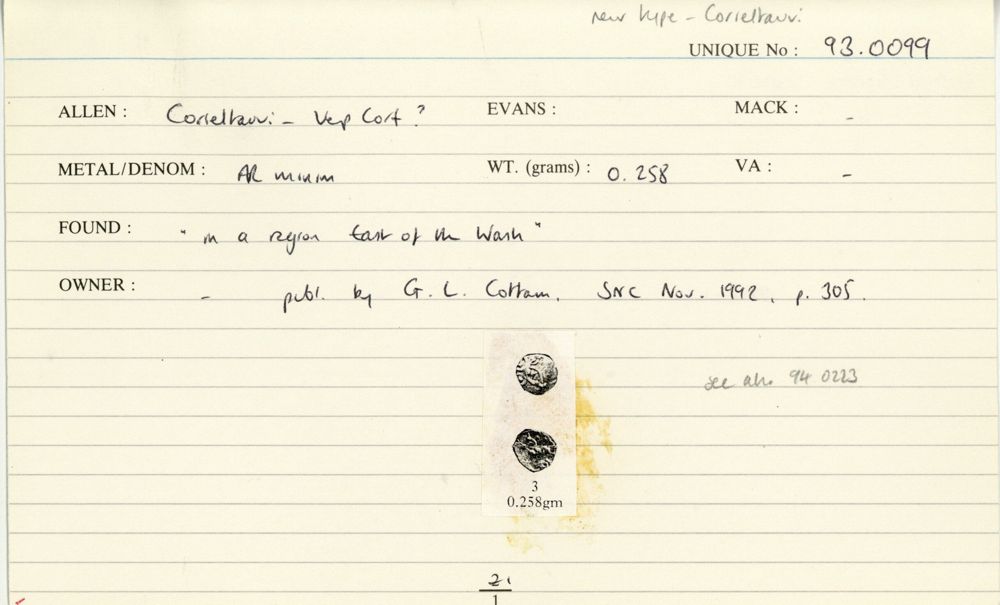 new type - Corieltauvi
UNIQUE No : 93.0099
ALLEN : Corieltauvi - Vep Corf ? EVANS : MACK : -
METAL/DENOM : AR minim WT. (grams) : 0.258 VA : -
FOUND : "in a region East of the Wash"
OWNER : - publ. by G. L. Cottam, SNC Nov. 1992, p. 305.
see also 94 0223
3
0.258gm
21
1